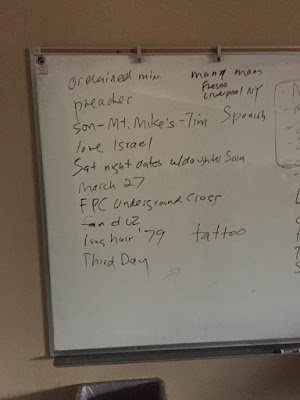 ordained min.
preacher
son - Mt. Mike's - Jim
love Israel
Sat night dates w/daughter
March 27
FPC Underground Cross
fan d U2
long hair '79
Third Day
many mom
Fresno
Liverpool NY
Spanish
tattoo